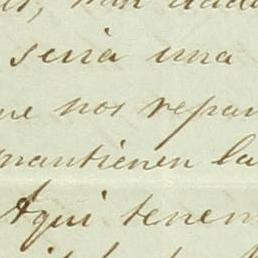 han
seria una
ue nos repar
mantienen la
Aqui tenem